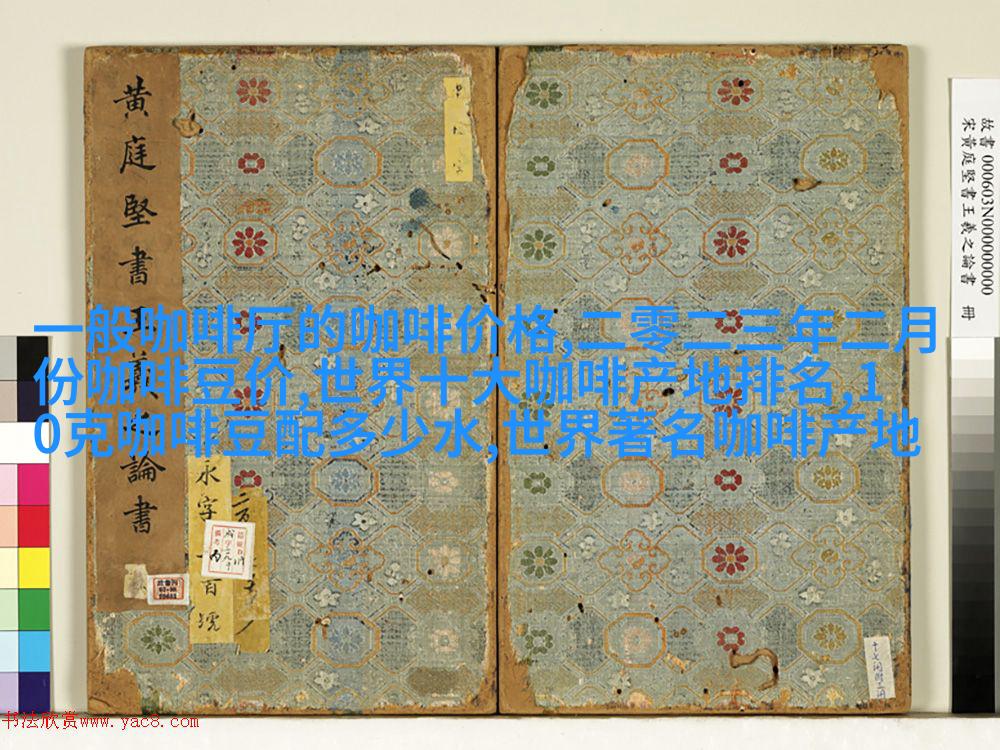 一般咖啡厅的咖啡价格,二零二三年二月
份咖啡豆价,世界十大咖啡产地排名,1
0克咖啡豆配多少水,世界著名咖啡产地
黄庭堅書
論書
永字
百號
故書 000603N000000000
宋黄庭堅書王羲之論書 冊
书法欣赏www.yac8.com